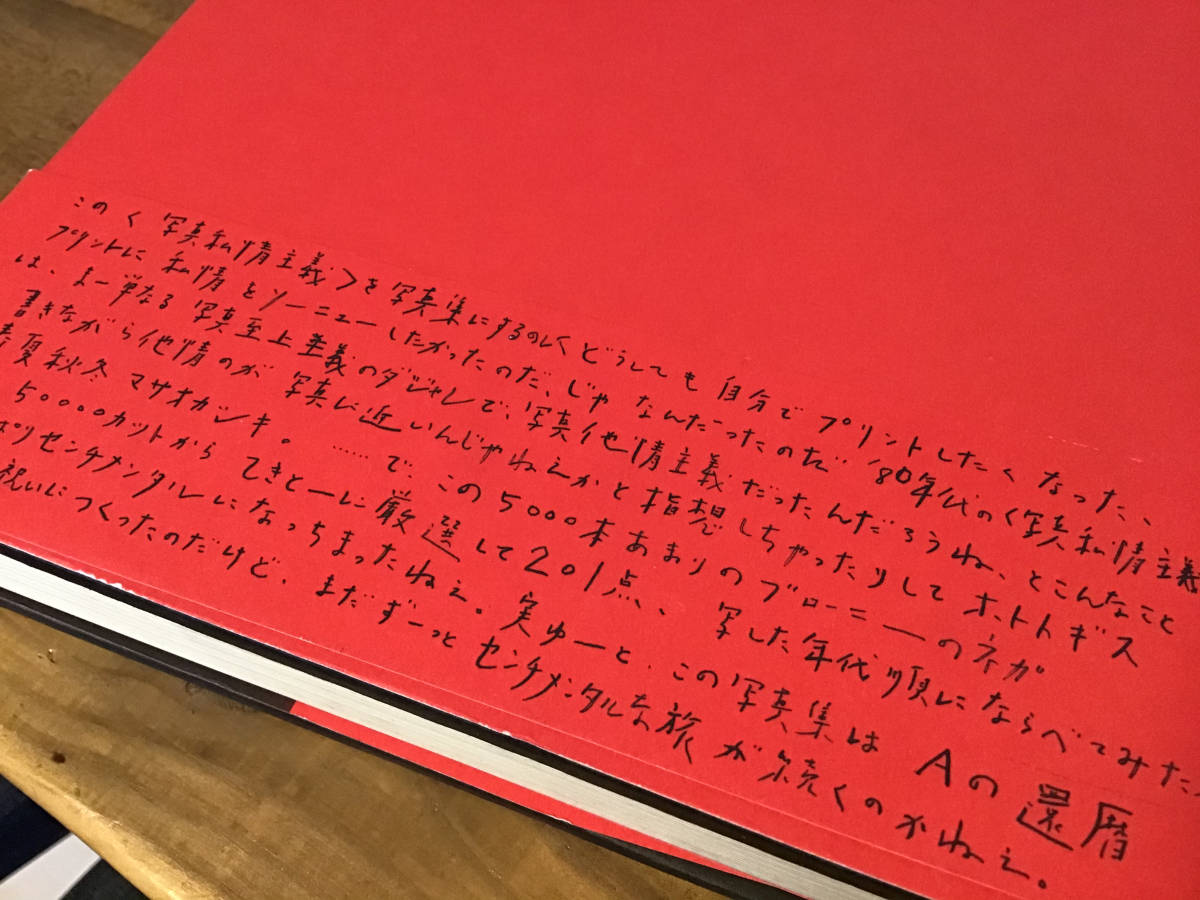 この〈写真私情主義〉を写真集にするのにどうしても自分でプリントしたくなった、
プリントに私情をソーニューしたかったのだ、じゃなんだったのだ'80年代の〈写真私情主義
は、まー単なる写真至上主義のダジャレで、写真他情主義だったんだろうね、とこんなこと
書きながら他情のが写真に近いんじゃねえかと指想しちゃったりしてホトトギス
春夏秋冬マサオカシキ。……で、この5000本あまりのブローニーのネガ
50000カットからてきとーに厳選して201点、写した年代順にならべてみた。
ポリセンチメンタルになっちまったねえ。実ゆーと、この写真集はAの還暦
祝いにつくったのだけど、まだずーっとセンチメンタルな旅が続くのかねェ。